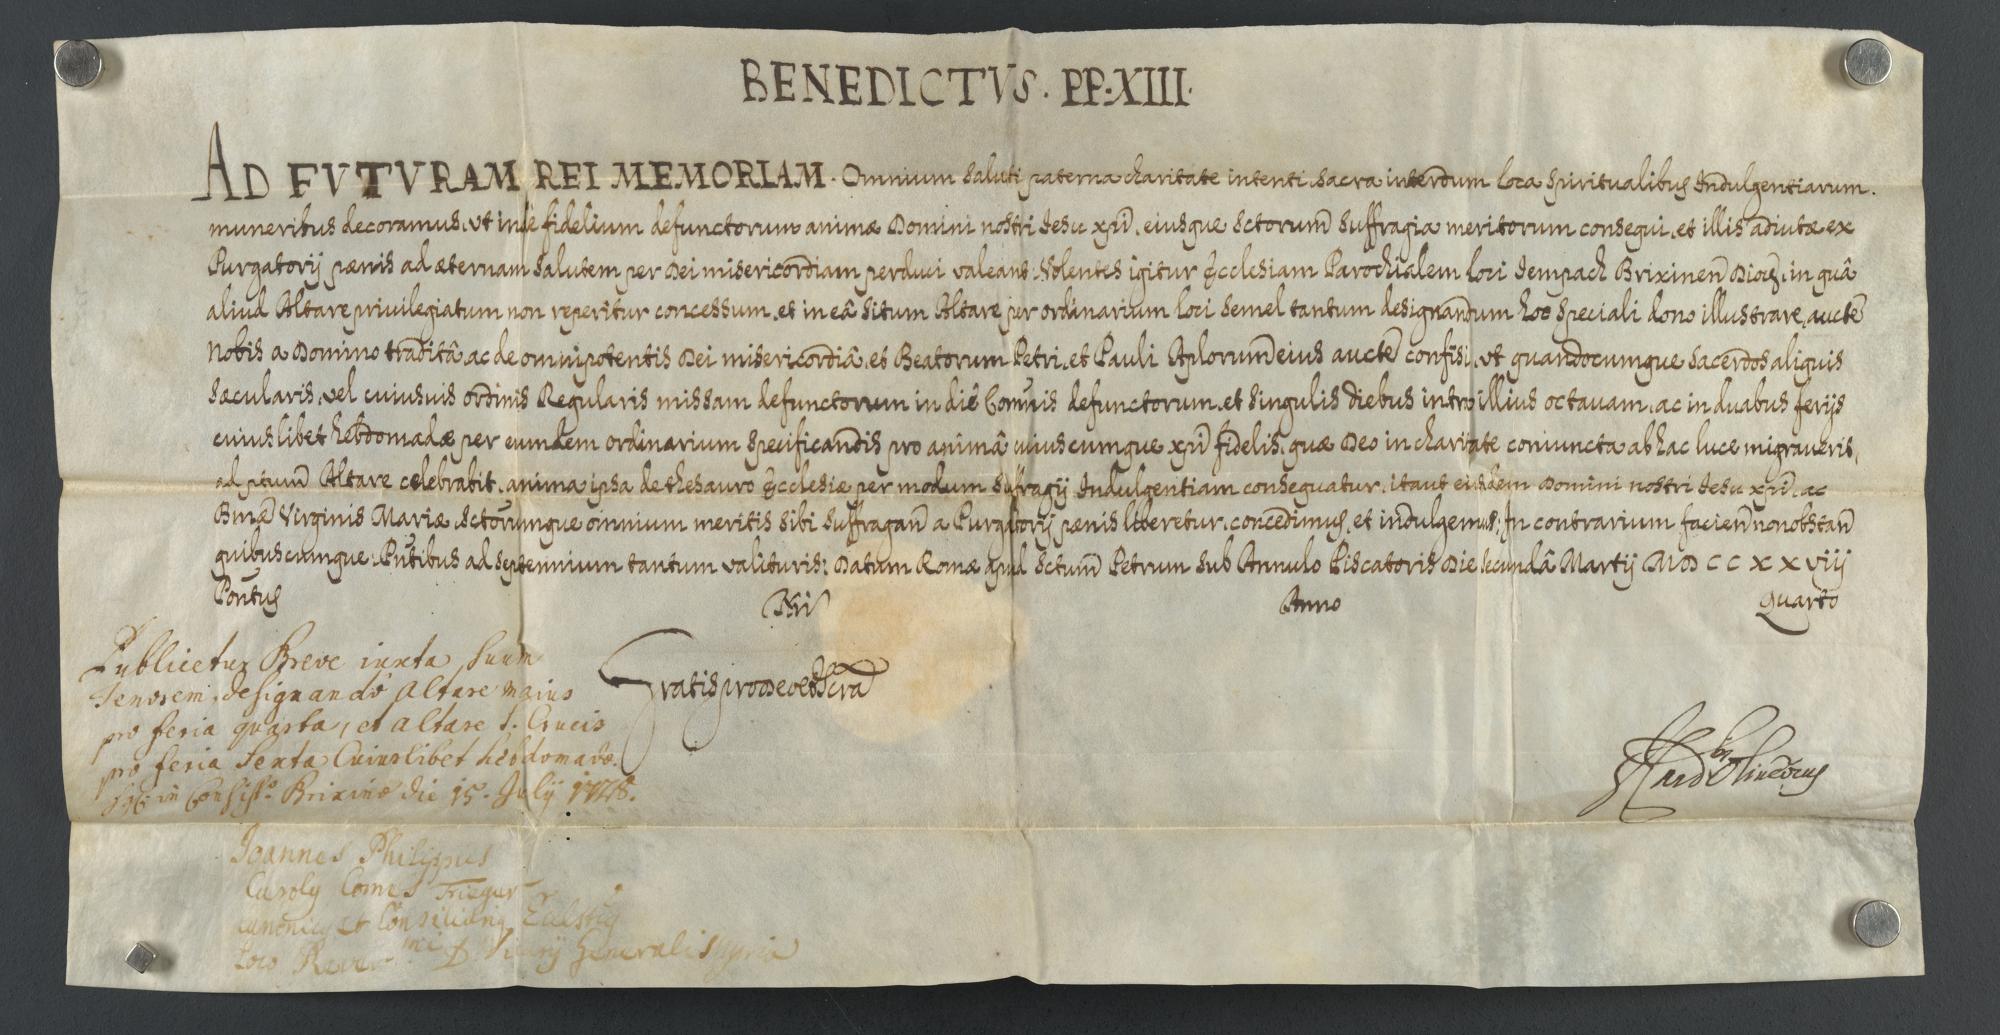 BENEDICTVS. PP. XIII.
AD FVTVRAM REI MEMORIAM. Omnium saluti paterna charitate intenti sacra interdum loca spiritualibus Indulgentiarum
muneribus decoramus, ut inde fidelium defunctorum animæ Domini nostri Jesu xpi, eiusque sctorum suffragia meritorum consequi, et illis adiutæ ex
Purgatorij pænis ad æternam salutem per Dei misericordiam perduci valeant. Volentes igitur Ecclesiam Parochialem loci Jempach Brixinen Dioc, in quâ
aliud Altare privilegiatum non reperitur concessum, et in eâ situm Altare per ordinarium loci semel tantum designandum hoc speciali dono illustrare, aucte
Nobis a Domino traditâ, ac de omnipotentis Dei misericordiâ, et Beatorum Petri, et Pauli Aplorum eius aucte confisi, ut quandocumque sacerdos aliquis
sæcularis, vel cuiusuis ordinis Regularis missam defunctorum in die Comunis defunctorum, et singulis diebus intro illius octavam, ac in duabus ferijs
cuiuslibet hebdomadæ per eumdem ordinarium specificandis pro animâ cuiuscumque xpi fidelis, quæ Deo in charitate coniuncta ab hac luce migraverit,
ad ptum Altare celebrabit, anima ipsa de thesauro Ecclesiæ per modum suffragij Indulgentiam consequatur, ita ut eiusdem Domini nostri Jesu xpi, ac
Bmæ Virginis Mariæ, sctorumque omnium meritis sibi suffragan a Purgatorij pænis liberetur, concedimus, et indulgemus; In contrarium facien non obstan
quibuscumque. Pntibus ad septennium tantum valituris: Datum Romæ apud Sctum Petrum sub Annulo Piscatoris Die secundâ Martij MDCCXXViij
Pontus Nri Anno Quarto
Publicetur Breve iuxta suum
Tenorem, designando Altare maius
pro feria quarta, et Altare S. Crucis
pro feria Sexta Cuiuslibet hebdomadæ.
in Consisto. Brixinæ die 15. Julij 1728.
Gratis pro Deo et Scra
Card Oliverius
Joannes Philippus
Caroly Comes
canonicy et Consiliariy
Loco Rever.mi D. Vicarij Generalis